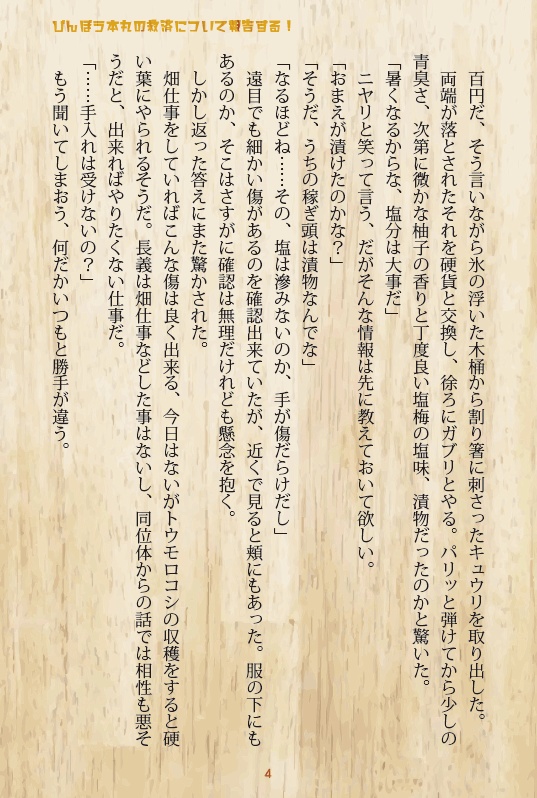 びんぼう本丸の救済について報告する!
百円だ、そう言いながら氷の浮いた木桶から割り箸に刺さったキュウリを取り出した。
両端が落とされたそれを硬貨と交換し、徐ろにガブリとやる。パリッと弾けてから少しの
青臭さ、次第に微かな柚子の香りと丁度良い塩梅の塩味、漬物だったのかと驚いた。
「暑くなるからな、塩分は大事だ」
ニヤリと笑って言う、だがそんな情報は先に教えておいて欲しい。
「おまえが漬けたのかな?」
「そうだ、うちの稼ぎ頭は漬物なんでな」
「なるほどね……その、塩は滲みないのか、手が傷だらけだし」
遠目でも細かい傷があるのを確認出来ていたが、近くで見ると頬にもあった。服の下にも
あるのか、そこはさすがに確認は無理だけれども懸念を抱く。
しかし返った答えにまた驚かされた。
畑仕事をしていればこんな傷は良く出来る、今日はないがトウモロコシの収穫をすると硬
い葉にやられるそうだ。長義は畑仕事などした事はないし、同位体からの話では相性も悪そ
うだと、出来ればやりたくない仕事だ。
「……手入れは受けないの?」
もう聞いてしまおう、何だかいつもと勝手が違う。
4